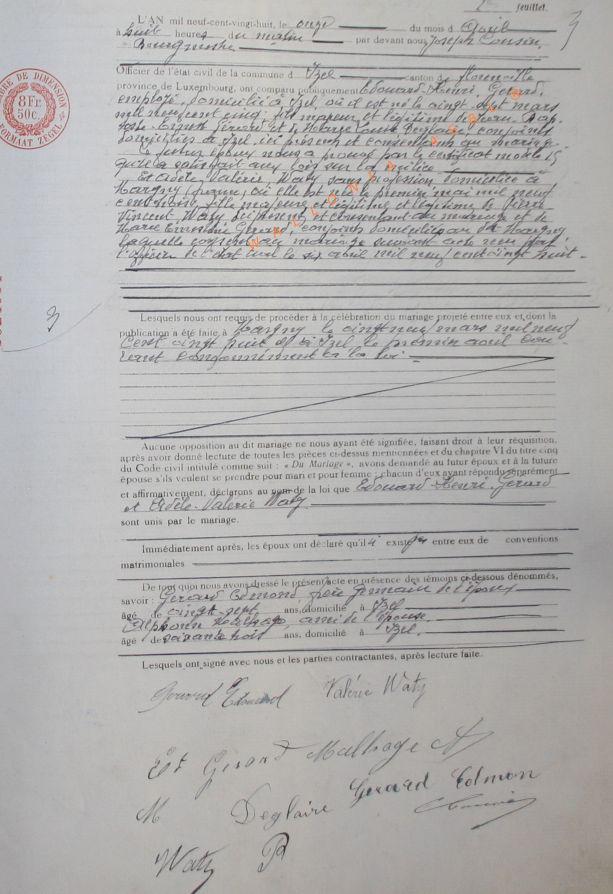 feuillet.
L'AN mil neuf-cent-vingt-huit, le onze du mois d'Avril
à huit heures du matin par devant nous Joseph
Bourgmestre
Officier de l'état civil de la commune d'Izel canton de Florenville
province de Luxembourg, ont comparu publiquement Edouard Henri Gérard,
employé, domicilié à Izel, où il est né le vingt sept mars
mil neuf cent cinq, fils majeur et légitime de Jean Bap-
tiste Gérard et de Marie Deglaire, conjoints
domiciliés à Izel, ici présents et consentant au mariage
Le futur époux nous a prouvé par le certificat modèle 15
qu'il a satisfait aux lois sur la milice
Et Adèle Valérie Waty sans profession domiciliée à
Margny (France) où elle est née le premier mai mil neuf
cent, fille majeure et légitime de Pierre
Vincent Waty ici présent et consentant au mariage et de
Marie Ernestine Gérard, conjoints domiciliés au dit Margny
laquelle consent au mariage suivant acte reçu par
l'officier de l'état civil le six avril mil neuf cent vingt huit.
3
3
TIMBRE DE DIMENSION
8 Fr.
50c.
FORMAAT ZEGEL
Lesquels nous ont requis de procéder à la célébration du mariage projeté entre eux et dont la
publication a été faite à Margny le vingt neuf mars mil neuf
cent vingt huit et à Izel le premier avril cou-
rant conformément à la loi.
Aucune opposition au dit mariage ne nous ayant été signifiée, faisant droit à leur réquisition,
après avoir donné lecture de toutes les pièces ci-dessus mentionnées et du chapitre VI du titre cinq
du Code civil intitulé comme suit : « Du Mariage », avons demandé au futur époux et à la future
épouse s'ils veulent se prendre pour mari et pour femme ; chacun d'eux ayant répondu séparément
et affirmativement, déclarons au nom de la loi que Edouard Henri Gérard
et Adèle Valérie Waty
sont unis par le mariage.
Immédiatement après, les époux ont déclaré qu'il existe entre eux de conventions
matrimoniales
De tout quoi nous avons dressé le présent acte en présence des témoins ci-dessous dénommés,
savoir : Gérard Edmond frère germain de l'époux
âgé de vingt sept ans, domicilié à Izel
Alphonse Malhage, ami de l'épouse.
âgé de soixante trois ans, domicilié à Izel.
Lesquels ont signé avec nous et les parties contractantes, après lecture faite.
Gérard Edouard Valérie Waty
Gérard Malhage A
M Deglaire Gérard Edmon
Waty P